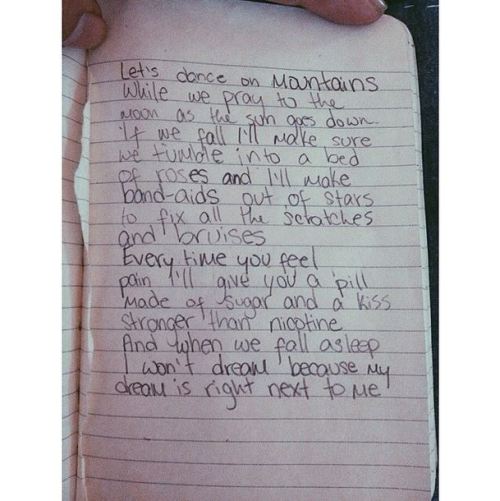 Let's dance on Mountains
While we pray to the
moon as the sun goes down
If we fall I'll make sure
we tumble into a bed
of roses and I'll make
band-aids out of stars
to fix all the scratches
and bruises
Every time you feel
pain I'll give you a pill
made of sugar and a kiss
stronger than nicotine
And when we fall asleep
I won't dream because my
dream is right next to me